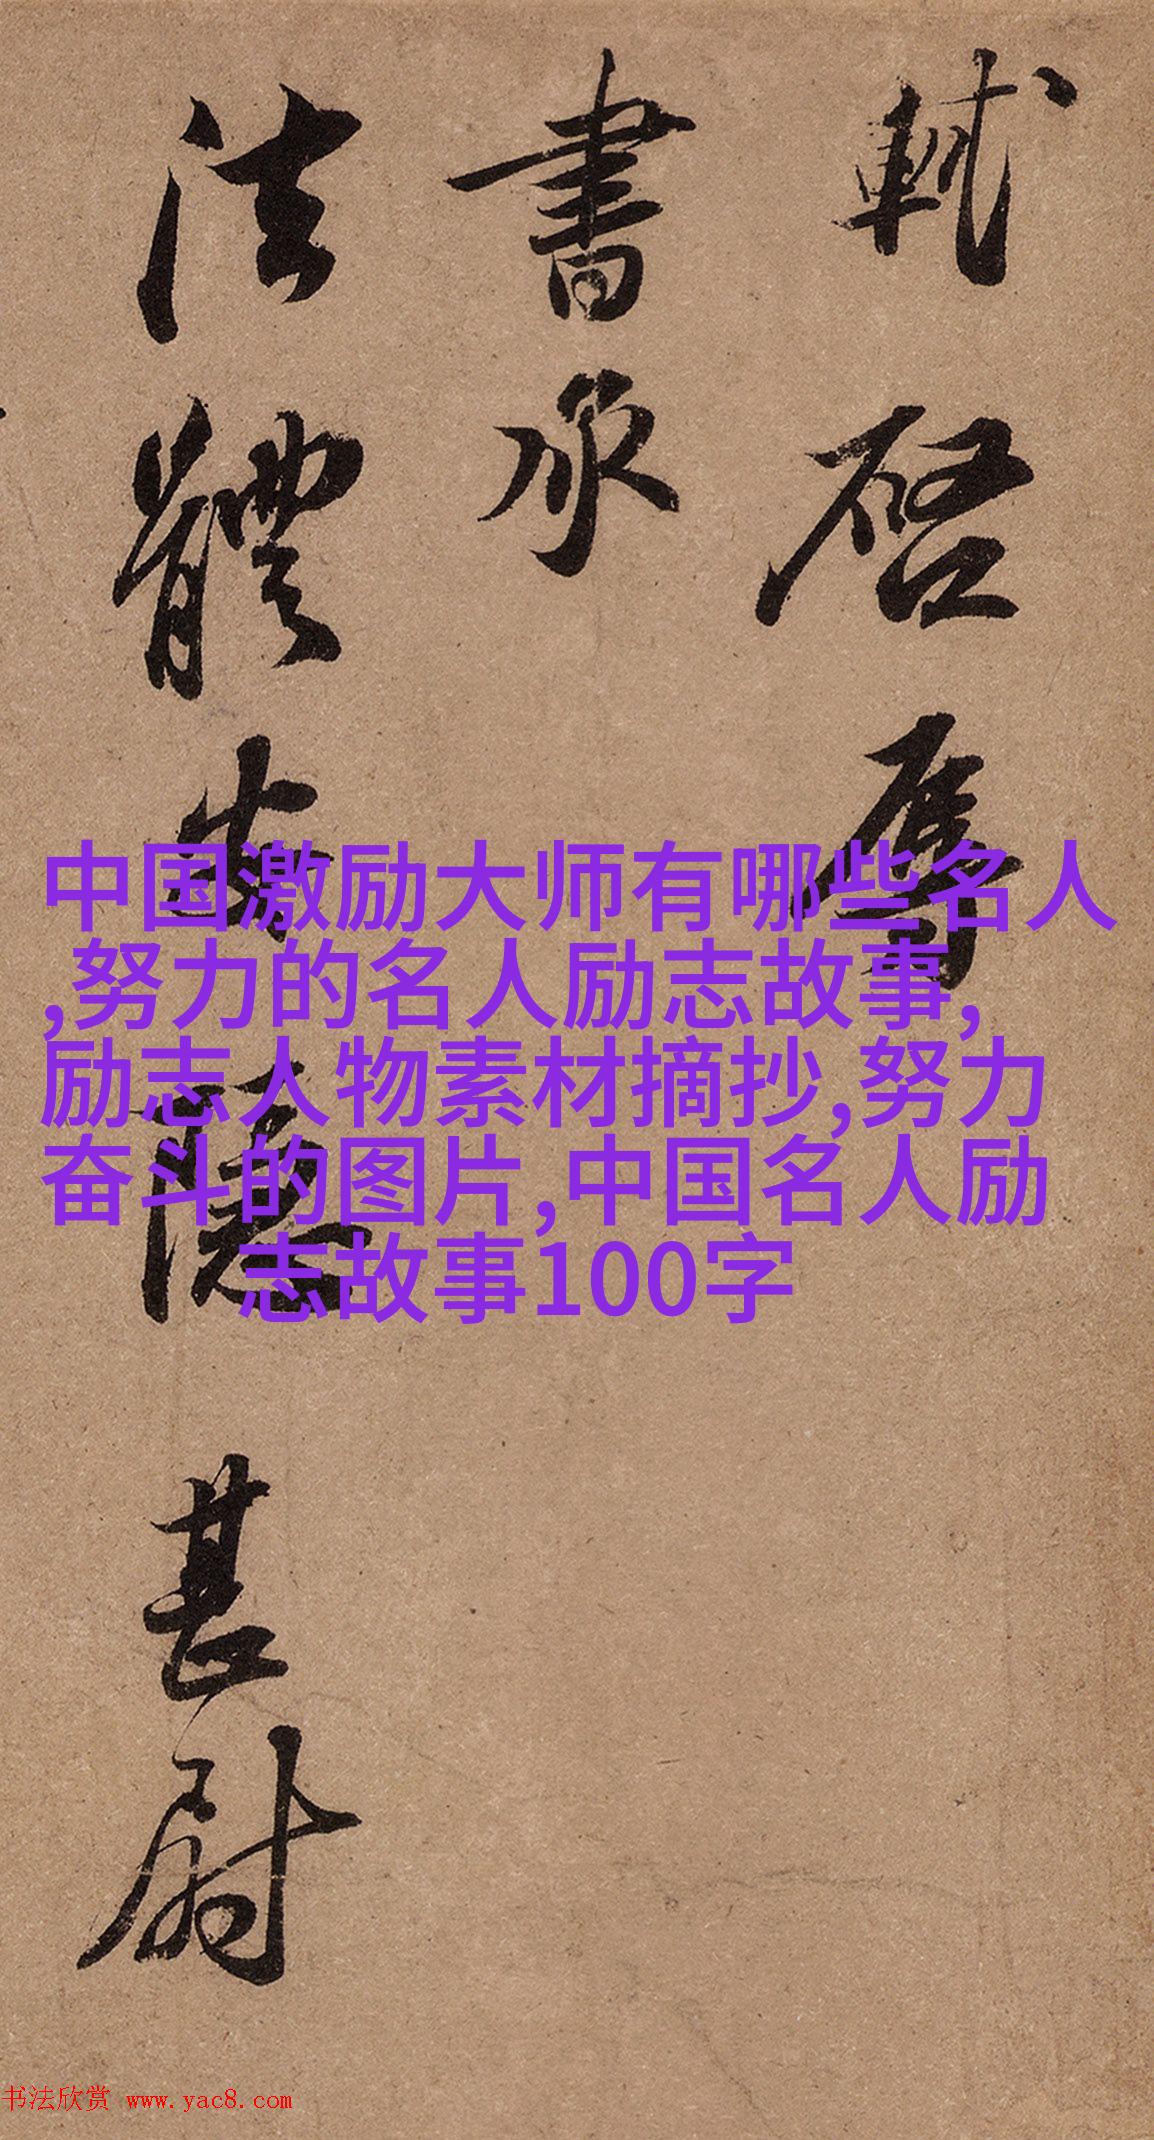 軾啓辱
書承
法體安隱甚慰
中国激励大师有哪些名人
,努力的名人励志故事,
励志人物素材摘抄,努力
奋斗的图片,中国名人励
志故事100字
书法欣赏 www.yac8.com